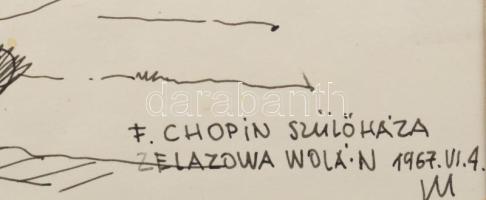 F. CHOPIN SZÜLŐHÁZA
ZELAZOWA WOLÁ·N 1967.VI.4.
darabanth